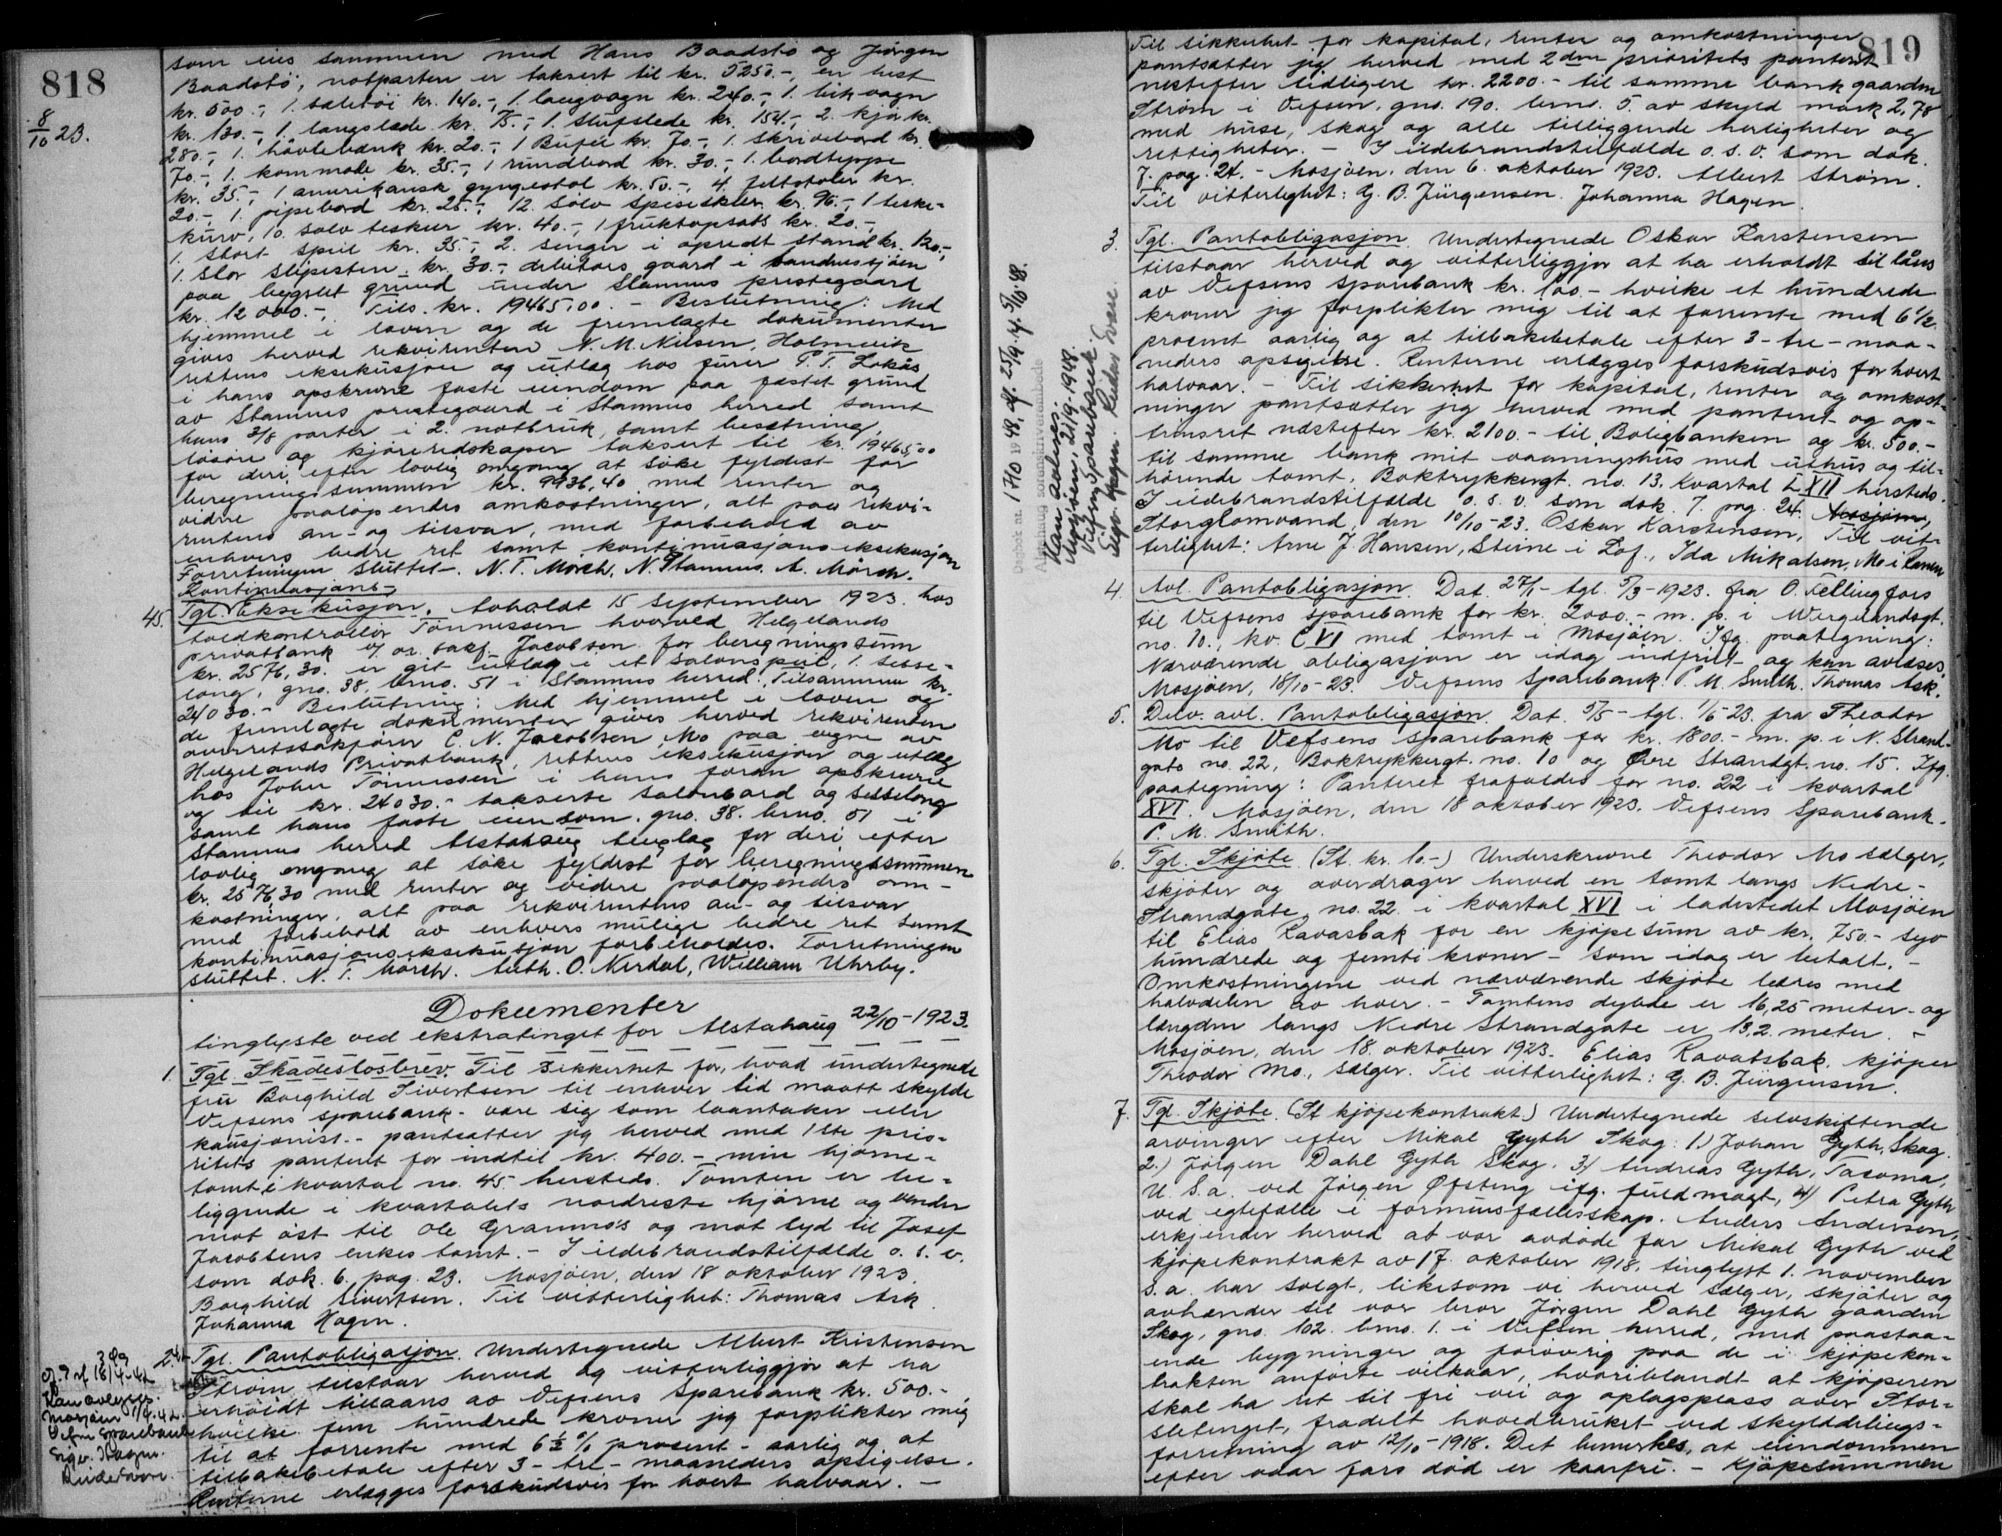 818
8/10 23.
som eies sammen med Hans Baadstø og Jørgen
Baadstø; notparten er taksert til kr. 5250.-, en hest
kr. 500.-, 1. sæletøi kr. 140.-, 1 langvogn kr. 240.-, 1. vogn
kr. 130.-, 1. langslæde kr. 75.-, 1 slæde kr. 154.-, 2. kjør kr.
280.-, 1. høvlebænk kr. 20.-, 1 Bufei kr. 70.-, 1 skrivebord kr.
70.-, 1. kommode kr. 35.-, 1 rundbord kr. 30.-, 1. bordteppe
kr. 35.-, 1 amerikansk gyngestol kr. 50.-, 4. feltstoler kr.
20.-, 1. pipebord kr. 25.-, 12. sølv spiseskeer kr. 96.-, 1
kurv, 10. sølv teskeer kr. 40.-, 1 fruktopsats kr. 20.-,
1. stort speil kr. 35.-, 2. senger i opredt stand kr. 120.-,
1. stor slipesten kr. 30.-, debitors gaard i Sandnessjøen
paa bygslet grund under Stamnes prestegaard
kr. 12 000.-, Tils. kr. 19465,00 - Beslutning: Med
hjemmel i loven og de fremlagte dokumenter
gives herved rekvirenten N. M. Nilsen, Holmvik
rettens eksekusjon og utlæg hos fører P. T. Lokås
i hans opskrevne faste eiendom paa fæstet grund
av Stamnes prestegaard i Stamnes herred samt
hans 3/8 parter i 2. notbruk, samt besætning,
løsøre og kjøreredskaper taksert til kr. 19465,00
for deri, efter lovlig omgang at søke fyldest for
beregningssummen kr. 9936,40 med renter og
videre paaløpendes omkostninger, alt paa rekvi-
rentens an- og tilsvar, med forbehold av
enhvers bedre ret samt kontinuasjonseksekusjon
Forretningen sluttet. N. T. Mørch, N. Stamnes, A. Mørch.
Kontinuasjons-
45. Tgl. Eksekusjon. Avholdt 15 september 1923 hos
toldkontrollør Tönnessen hvorved Helgelands
privatbank v/ or. sakf. Jacobsen for beregningssum
kr. 2576,30. er git utlæg i et salonspeil, 1. sesse-
long, gno. 38, brno. 51 i Stamnes herred, Tilsammen kr.
24030.- Beslutning: Med hjemmel i loven og
de fremlagte dokumenter gives herved rekvirenten
overretssakfører C. N. Jacobsen, Mo paa vegne av
Helgelands Privatbank, rettens eksekusjon og utlæg
hos John Tönnessen i hans foran opskrevne
og til kr. 24030.- takserte salonbord og sesselong
samt hans faste eiendom. gno. 38. brno. 51 i
Stamnes herred Alstahaug tinglag for deri efter
lovlig omgang at søke fyldest for beregningssummen
kr. 2576,30 med renter og videre paaløpendes om-
kostninger, alt paa rekvirentens an- og tilsvar
med forbehold av enhvers mulige bedre ret samt
kontinuasjonseksekusjon forbeholdes. Forretningen
sluttet. N. T. Mörch. Anth. O. Nerdal, William Uhrby.
Dokumenter
tinglyste ved ekstratinget for Alstahaug 22/10-1923.
1. Tgl. Skadesløsbrev. Til sikkerhet for, hvad undertegnede
fru Borghild Sivertsen til enhver tid maatt skylde
Vefsens sparebank - være sig som laantaker eller
kausjonist - pantsætter jeg herved med 1ste prio-
ritets panteret for indtil kr. 400.- min hjørne-
tomt i kvartal no. 45 hersteds. Tomten er be-
liggende i kvartalets nordreste hjørne og vender
mot øst til Ole Grannæs og mot syd til Josef
Jacobsens enkes tomt. - I ildebrandstilfælde o. s. v.
som dok. 6. pag. 23. Mosjøen, den 18 oktober 1923.
Borghild Sivertsen. Til vitterlighet: Thomas Ask
Johanna Hagen.
2. Tgl. Pantobligasjon. Undertegnede Albert Kristensen
Strøm tilstaar herved og vitterliggjør at ha
erholdt tillaans av Vefsens Sparebank kr. 500.-
hvilke fem hundrede kroner jeg forplikter mig
til at forrente med 6½ % prosent - aarlig og at
tilbakebetale efter 3 - tre - maaneders opsigelse.
Renterne erlægges forskudsvis for hvert halvaar. -
Kan avlyses.
Mosjøen
Vefsn Sparebank
Sigv. Hagen.
819
Til sikkerhet for kapital, renter og omkostninger
pantsætter jeg herved med 2den prioritets panteret
næstefter tidligere kr. 2200.- til samme bank gaarden
Strøm i Vefsen, gno. 190. brno. 5 av skyld mark 2,78
med huse, skog og alle tilliggende herligheter og
rettigheter. - I ildebrandstilfælde o. s. v. som dok.
7. pag. 24. - Mosjöen, den 6. oktober 1923. Albert Strøm.
Til vitterlighet: G. B. Jürgensen. Johanna Hagen.
3. Tgl. Pantobligasjon. Undertegnede Oskar Karstensen
tilstaar herved og vitterliggjør at ha erholdt til låns
av Vefsens Sparebank kr. 100.- hvilke et hundrede
kroner jeg forplikter mig til at forrente med 6 1/2
procent aarlig og at tilbakebetale efter 3 - tre - maa-
neders opsigelse. Renterne erlægges forskudsvis for hvert
halvaar. - Til sikkerhet for kapital, renter og omkost-
ninger pantsætter jeg herved med panteret og op-
trinsret næstefter kr. 2100.- til Boligbanken og kr. 500.-
til samme bank mit vaaningshus med uthus og til-
hørende tomt, Boktrykkergt. no. 13. kvartal LXII hersteds.
I ildebrandstilfælde o. s. v. som dok. 7. pag. 24. Mosjøen,
Storglomvand, den 10/10-23. Oskar Karstensen, Til vit-
terlighet: Arne J. Hansen, Steine i Lof., Ida Mikalsen, Mo i Ranen
4. Avl. Pantobligasjon. Dat. 27/1 - tgl. 5/3-1923. fra O. Fellingfors
til Vefsens Sparebank for kr. 2000.- m. p. i Wergelandsgt.
no. 10., kv. C VI med tomt i Mosjøen. Ifg. paategning:
Nærværende obligasjon er idag indfriet og kan avlæses,
Mosjöen, 18/10-23. Vefsens Sparebank. P. M. Smith. Thomas Ask.
5. Delv. avl. Pantobligasjon. Dat. 5/5 - tgl. 1/6-23. fra Theodor
Mo til Vefsens Sparebank for kr. 1800.- m. p. i N. Strand-
gate no. 22, Boktrykkergt. no. 10 og Øvre Strandgt. no. 15. Ifg.
paategning: Panteret frafaldes for no. 22 i kvartal
XVI. Mosjøen, den 18 oktober 1923. Vefsens Sparebank.
P. M. Smith.
6. Tgl. Skjøte (St. kr. 10.-) Underskrevne Theodor Mo sælger,
skjøter og overdrager herved en tomt langs Nedre-
Strandgate, no. 22 i kvartal XVI i ladestedet Mosjøen
til Elias Ravasbak for en kjøpesum av kr. 750.- syv
hundrede og femti kroner - som idag er betalt. -
Omkostningene ved nærværende skjøte bæres med
halvdelen av hver. - Tomtens dybde er 16,25 meter - og
længden langs Nedre Strandgate er 13,2. meter. -
Mosjøen, den 18. oktober 1923. Elias Ravatsbak. kjøper
Theodor Mo, sælger. Til vitterlighet: G. B. Jürgensen.
7. Tgl. Skjøte (St kjøpekontrakt) Undertegnede selvskiftende
arvinger efter Mikal Gyth Skog: 1.) Johan Gyth, Skog.
2.) Jørgen Dahl Gyth Skog. 3.) Andreas Gyth, Tacoma,
U. S. a. ved Jørgen Øfsteng ifg. fuldmagt, 4) Petra Gyth
ved egtefælle i formuesfællesskap. Anders Andersen,
erkjender herved at vor avdøde far Mikal Gyth ved
kjøpekontrakt av 17. oktober 1918, tinglyst 1. november
s. a. har solgt, likesom vi herved sælger, skjøter og
avhænder til vor bror Jørgen Dahl Gyth gaarden
Skog, gno. 102. brno. 1. i Vefsen herred, med paastaa-
ende bygninger og forøvrig paa de i kjøpekon-
trakten anførte vilkaar, hvoriblandt at kjøperen
skal ha ret til fri vei og oplagsplass over Stor-
sletenget, fradelt hovedbruket ved skylddelings-
forretning av 12/10-1918. Det bemerkes, at eiendommen
efter vaar fars død er kaarfri. - Kjøpesummen
Dagbok nr. 1710 1948
Kan avlyses.
Mosjøen, 21/9-1948.
Vefsn Sparebank.
Sigv. Hagen.